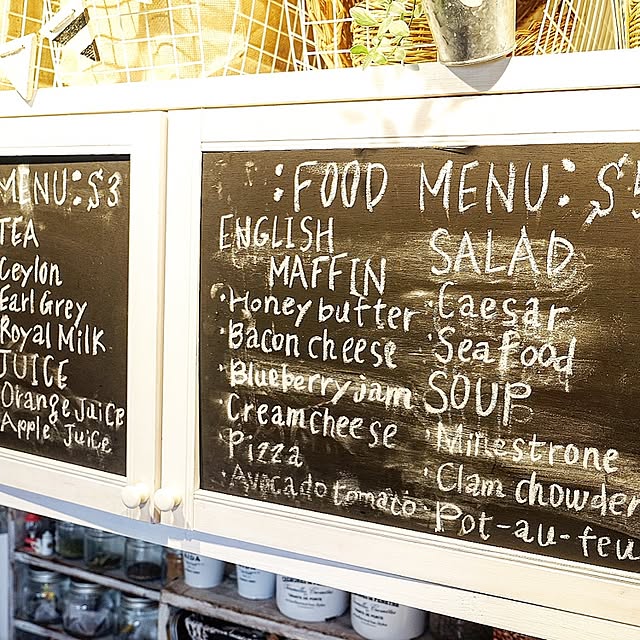 MENU: $3
TEA
Ceylon
Earl Grey
Royal Milk
JUICE
Orange Juice
Apple Juice
:FOOD MENU: $5
ENGLISH
MAFFIN
·Honey butter
·Bacon cheese
·Blueberry jam
·Creamcheese
·Pizza
·Avocado tomato
SALAD
·Caesar
·Seafood
SOUP
·Minestrone
·Clam chowder
·Pot-au-feu